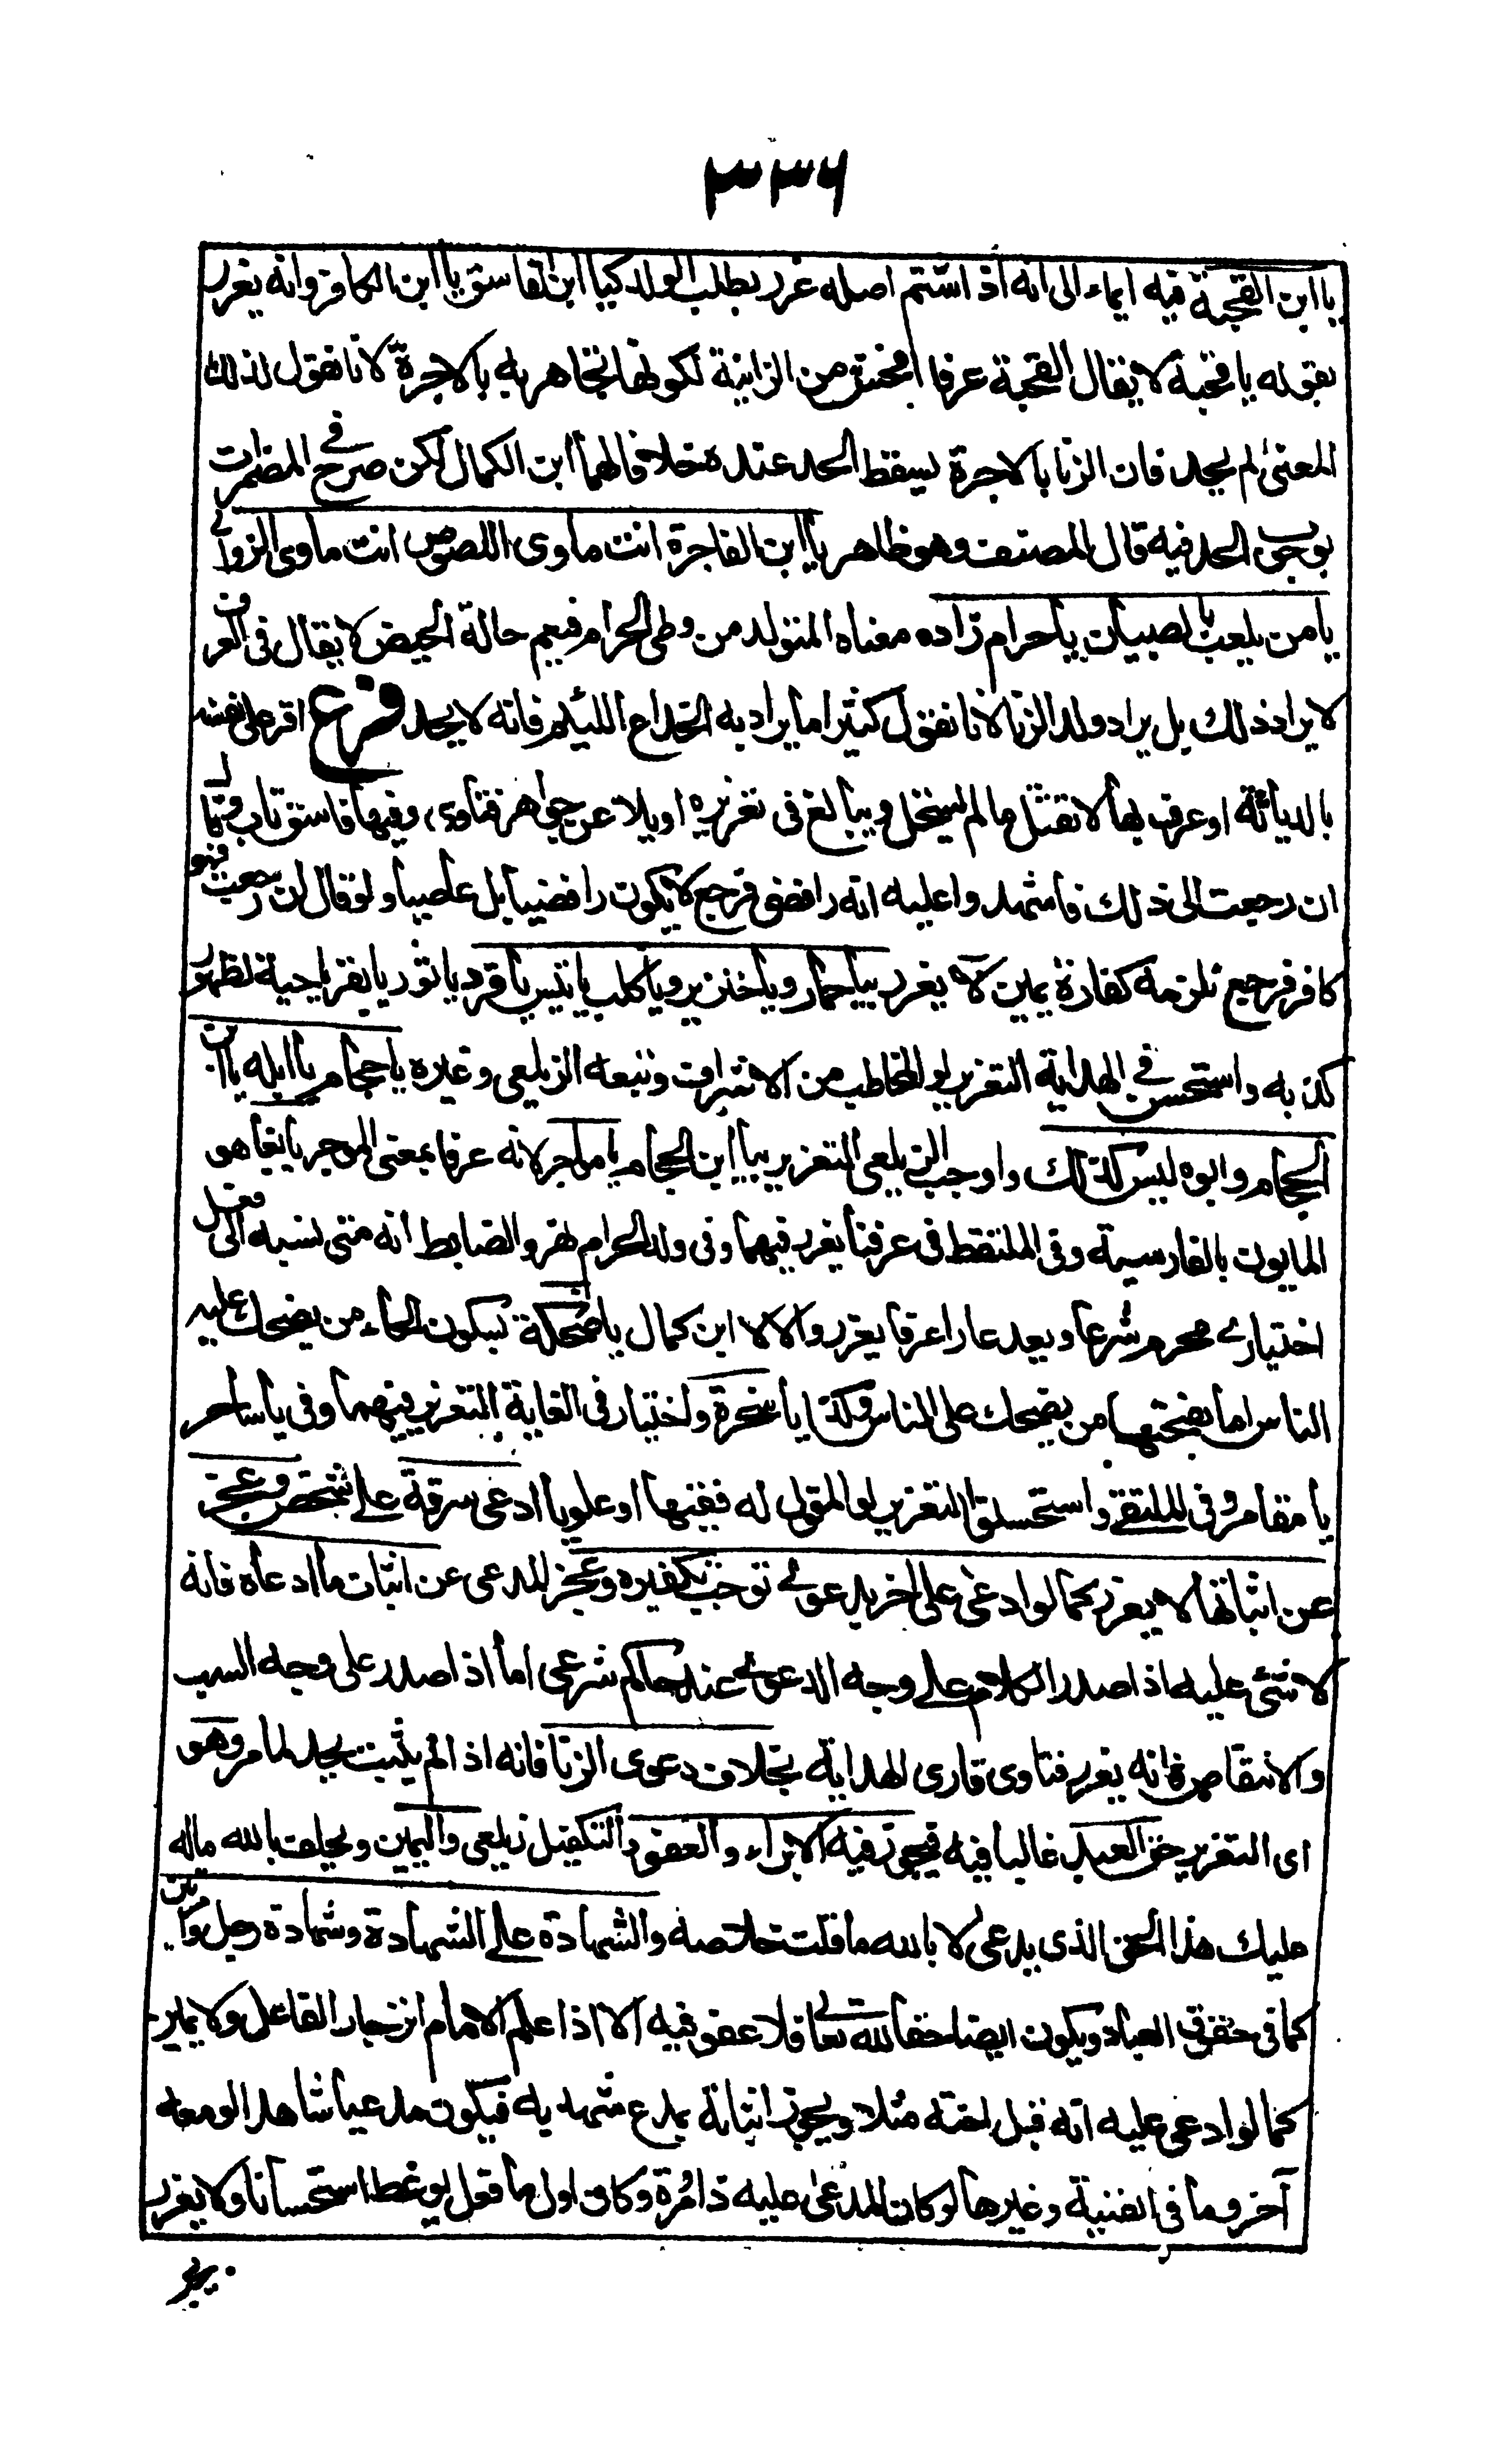 ٣٣٦
يا ابن القحبة فيه ايماء الى انه اذا شتم اصله عزر بطلب الولد كيا ابن الفاسق يا ابن الكافر وانه يعزر
بقوله يا قحبة لا يقال القحبة عرفا افحش من الزانية لكونها تجاهر به بالاجرة لانا نقول لذلك
المعنى لم يحد فان الزنا بالاجرة يسقط الحد عنده خلافا لهما ابن الكمال لكن صرح في المضمرات
بوجوب الحد فيه قال المصنف وهو ظاهر يا ابن الفاجرة انت ماوى اللصوص انت ماوى الزواني
يا من يلعب بالصبيان يا حرام زاده معناه المتولد من وطى الحرام فيعم حالة الحيض لا يقال في العرف
لا يراد ذلك بل يراد ولد الزنا لانا نقول كثيرا ما يراد به الخداع اللئيم فانه لا يحد فرع اقر على نفسه
بالدياثة او عرف بها لا يقتل ما لم يستحل ويبالغ في تعزيره او يلاعن جواهر فتاوى وفيها فاسق تاب وقال
ان رجعت الى ذلك فاشهدوا عليه انه رافضي فرجع لا يكون رافضيا بل عاصيا ولو قال ان رجعت فهو
كافر فرجع تلزمه كفارة يمين لا يعزر بيا حمار ويا خنزير ويا كلب يا تيس يا قرد يا ثور يا بقر يا حية لظهور
كذبه واستحسن في الهداية التعزير لو المخاطب من الاشراف وتبعه الزيلعي وغيره يا حجام يا ابله يا ابن
الحجام وابوه ليس كذلك واوجب الزيلعي التعزير بيا ابن الحجام يا مواجر لانه عرفا بمعنى الموجر يا بغا هو
المابون بالفارسية وفي الملتقط في عرفنا يعزر فيهما وفي ولد الحرام نهر والضابط انه متى نسبه الى فعل
اختياري محرم شرعا ويعد عارا عرفا يعزر والا لا ابن كمال يا ضحكة بسكون الحاء من يضحك عليه
الناس اما بفتحها من يضحك على الناس وكذا يا سخرة واختار في الغاية التعزير فيهما وفي يا ساحر
يا مقامر وفي الملتقى واستحسنوا التعزير لو المقول له فقيها او علويا ادعى سرقة على شخص وعجز
عن اثباتها لا يعزر كما لو ادعى على اخر بدعوى توجب تكفيره وعجز المدعى عن اثبات ما ادعاه فانه
لا شئ عليه اذا صدر الكلام على وجه الدعوى عند حاكم شرعي اما اذا صدر على وجه السب
والانتقاص فانه يعزر فتاوى قارى الهداية بخلاف دعوى الزنا فانه اذا لم يثبت يحد لما مر وهو
اى التعزير حق العبد غالبا فيه فيجوز فيه الابراء والعفو والتكفيل زيلعي واليمين ويحلف بالله ماله
عليك هذا الحق الذى يدعى لا بالله ما قلت خلاصه والشهادة على الشهادة وشهادة رجل وامراتين
كما في حقوق العباد ويكون ايضا حقا لله تعالى فلا عفو فيه الا اذا علم الامام انزجار الفاعل ولا يمين
كما لو ادعى عليه انه قبل اخته مثلا ويجوز اثباته بمدع شهد به فيكون مدعيا شاهدا لو معه
آخر وما في القنية وغيرها لو كان المدعى عليه ذا مرة وكان اول ما فعل يوعظ استحسانا ولا يعزر